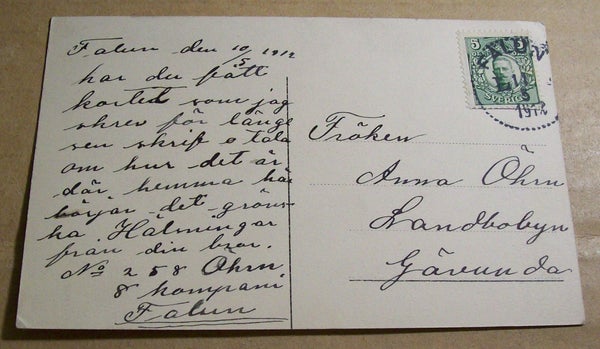 Falun den 10/5 1912
har du fått
kortet som jag
skrev för länge
sen skrif o tala
om hur det är
där hemma här
börjar det gröns-
ka. Hälningar
från din bror.
No 258 Öhrn
8 kompani
Falun
5
SVERIGE
FALUN
10
5
1912
Fröken
Anna Öhrn
Landbobyn
Gävunda